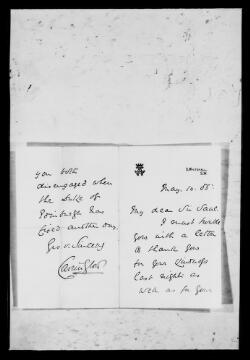 May. 10. 88.
My dear Sir Saul.
I must trouble
you with a letter
to thank you
for your kindness
last night as
well as for your
you both
disengaged when
the Duke of
has
fixed another day.
Yrs. sincerely
Carington